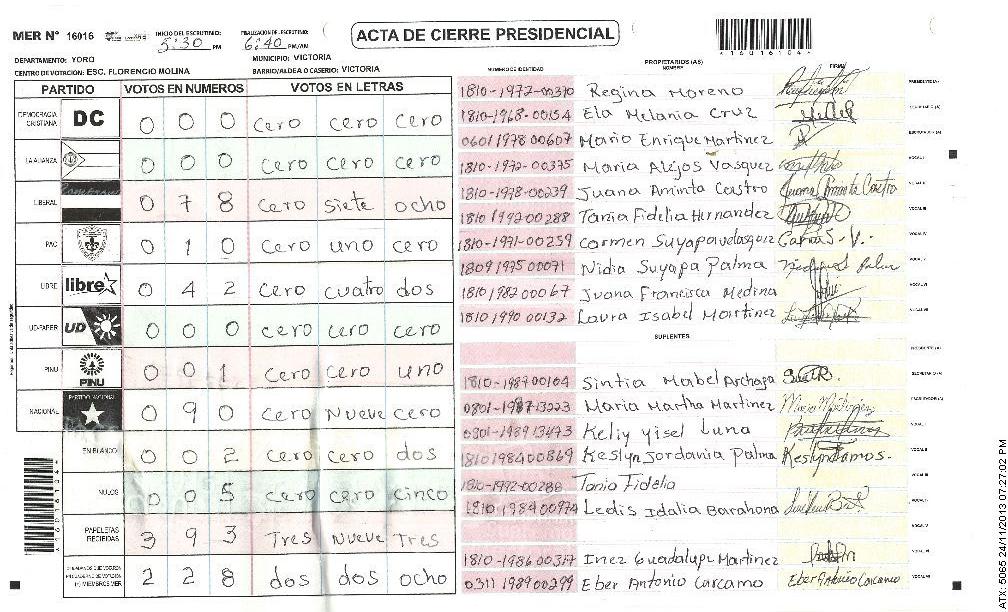 MER N° 16016
INICIO DEL ESCRUTINIO: 5:30 PM
FINALIZACION DE ESCRUTINIO: 6:40 PM/AM
ACTA DE CIERRE PRESIDENCIAL
*16016104*
DEPARTAMENTO: YORO
MUNICIPIO: VICTORIA
CENTRO DE VOTACIÓN: ESC. FLORENCIO MOLINA
BARRIO/ALDEA O CASERIO: VICTORIA
PARTIDO VOTOS EN NUMEROS VOTOS EN LETRAS
DEMOCRACIA CRISTIANA DC 0 0 0 cero cero cero
LA ALIANZA 0 0 0 cero cero cero
LIBERAL 0 7 8 cero siete ocho
PAC 0 1 0 cero uno cero
LIBRE libre 0 4 2 cero cuatro dos
UD-FAPER UD 0 0 0 cero cero cero
PINU PINU 0 0 1 cero cero uno
NACIONAL PARTIDO NACIONAL 0 9 0 cero Nueve cero
EN BLANCO 0 0 2 cero cero dos
NULOS 0 0 5 cero cero cinco
PAPELETAS RECIBIDAS 3 9 3 Tres Nueve Tres
2 2 8 dos dos ocho
NUMERO DE IDENTIDAD
PROPIETARIOS (AS)
NOMBRE
FIRMA
1810-1972-00370 Regina Moreno PRESIDENTE(A)
1810-1968-00154 Ela Melania Cruz SECRETARIO (A)
0601 1978 00607 Mario Enrique Martinez ESCRUTADOR (A)
1810-1972-00375 Maria Alejos Vasquez VOCAL I
1810-1978-00239 Juana Aminta Castro Juana Aminta Castro VOCAL II
1810 1992 00288 Tania Fidelia Hernandez VOCAL III
1810-1971-00259 Carmen Suyapa velasquez VOCAL IV
1809 1975 00071 Nidia Suyapa Palma VOCAL V
1810 1982 00067 Juana Francisca Medina VOCAL VI
1810 1990 00132 Laura Isabel Martinez VOCAL VII
SUPLENTES
PRESIDENTE (A)
1810-1989 00104 Sintia Mabel Archaga SECRETARIO (A)
0801-1987-13223 Maria Martha Martinez ESCRUTADOR (A)
0801-1989 13473 Keliy yisel Luna VOCAL I
1810 1984 00869 Keslyn Jordania Palma VOCAL II
1810-1992-00288 Tania Fidelia VOCAL III
1810-1984 00974 Ledis Idalia Barahona
VOCAL V
1810-1986 00317 Inez Guadalupe Martinez VOCAL VI
0311 1989 00299 Eber Antonio Carcamo Eber Antonio Carcamo VOCAL VII
*16016104*
ATX:5065 24/11/2013 07:27:02 PM